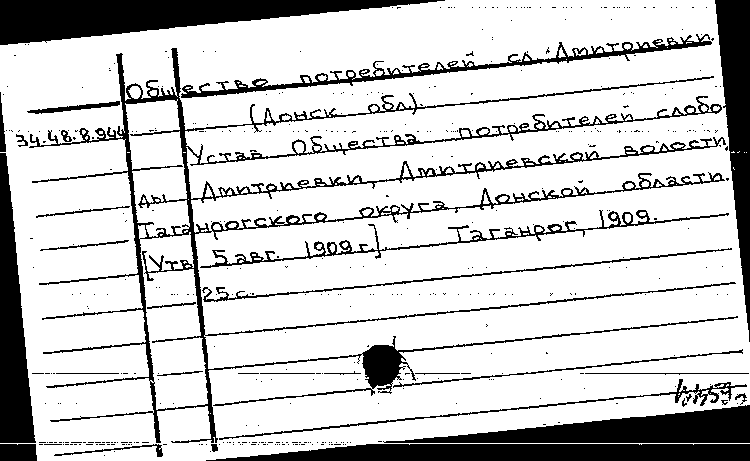 Общество потребителей сл. Дмитриевки
(Донск обл.)
34.48.8.944
Устав Общества потребителей слобо
ды Дмитриевки, Дмитриевской волости
Таганрогского округа, Донской области.
[Утв. 5 авг. 1909 г.]. Таганрог, 1909.
25 с.